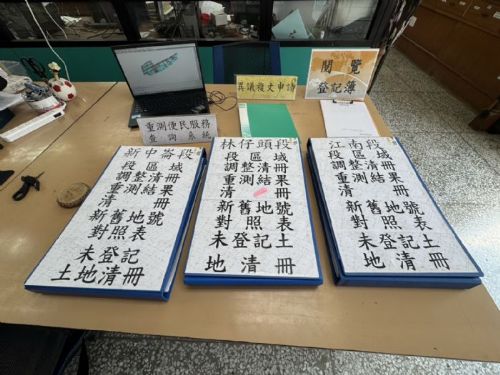 重測便民服務
查詢系統
異議複丈申請
閱覽
登記簿
新中崙段
段區域
調整清冊
重測結果
清冊
新舊地號
對照表
未登記
土地清冊
林仔頭段
段區域
調整清冊
重測結果
清冊
新舊地號
對照表
未登記土
地清冊
江南區段
段區域
調整清冊
重測結果
清冊
新舊地號
對照表
未登記土
地清冊